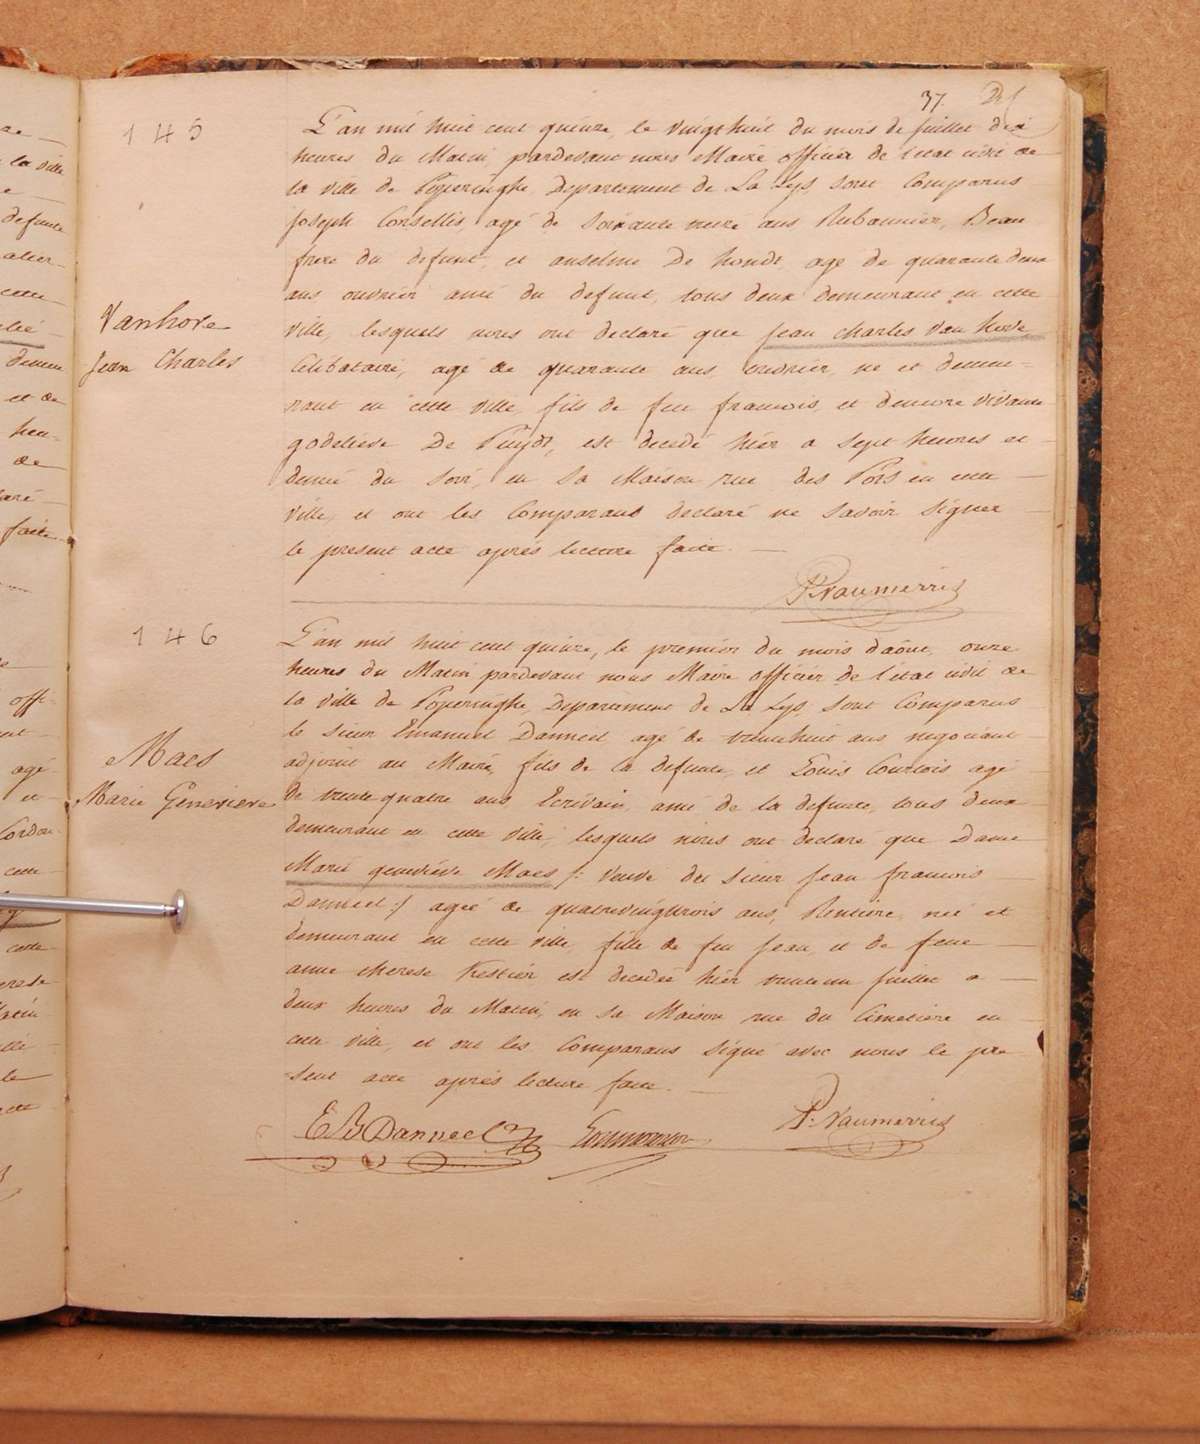 37.
145
L'an mil huit cent quinze, le vingthuit du mois de Juillet dix
heures du Matin pardevant nous Maire officier de l'etat civil de
la ville de Poperinghe, Departement de La Lys, sont Comparus
Joseph Corsellis, agé de Soixante treize ans Rubannier, Beau
frere du defunt, et anselme De hondt agé de quarante deux
ans ouvrier ami du defunt, tous deux demeurant en cette
ville, lesquels nous ont declaré que Jean Charles Van hove,
Vanhove
Jean Charles
Celibataire, agé de quarante ans ouvrier, né et demeu=
rant en cette ville, fils de feu francois, et d'encore vivante
godelieve De Puydt, est decedé hier a sept heures et
demie du soir, en sa Maison rue des Pots en cette
ville, et ont les Comparans declaré ne savoir signer
le present acte après lecture faite.
P. Vaumerris
146
L'an mil huit cent quinze, le premier du mois d'août, onze
heures du Matin pardevant nous Maire officier de l'etat civil de
la ville de Poperinghe, Departement de La Lys, sont Comparus
le sieur Emanuel Danneel agé de trentehuit ans negociant
adjoint au Maire, fils de la defunte, et Louis Courtois agé
Maes
Marie Genevieve
de trente quatre ans Ecrivain, ami de la defunte, tous deux
demeurant en cette ville, lesquels nous ont declaré que Dame
Marie genevieve Maes /: veuve du sieur Jean francois
Danneel :/ agée de quatrevingttrois ans, Rentiere, née et
demeurant en cette ville, fille de feu Jean, et de feue
anne therese Festier est decedée hier trenteun juillet a
deux heures du Matin, en sa Maison rue du Cimetiere en
cette ville, et ont les Comparans signé avec nous le pre
=sent acte après lecture faite.
E B Danneel
P. Vaumerris